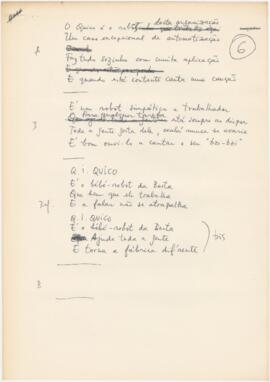 desta organização
O Quico é o robot
6
Um caso excepcional de automatização
2
Faz tudo sozinho com muita aplicação
E quando está contente canta uma canção
É um robot simpático e trabalhador
3
Para qualquer tarefa está sempre ao dispor
Toda a gente gosta dele, oxalá nunca se avarie
É bom ouvi-lo a cantar o seu "boi-boi"
Q. I. QUICO
É o bébé-robot da Beita
Que bem que ele trabalha
E a falar não se atrapalha
Q. I. QUICO
É o bébé-robot da Beita
bis
Ajuda toda a gente
E torna a fábrica diferente
3